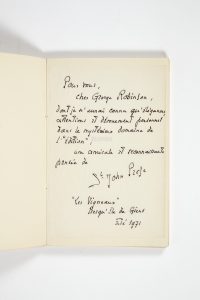 Pour vous,
cher George Robinson,
dont je n'aurai connu qu'élégances
attentions et dévouement personnel
dans le mystérieux domaine de
l'"édition";
une amicale et reconnaissante
pensée de
St. John Perse
"Les Vigneaux"
Presqu'île de Giens
Eté 1971